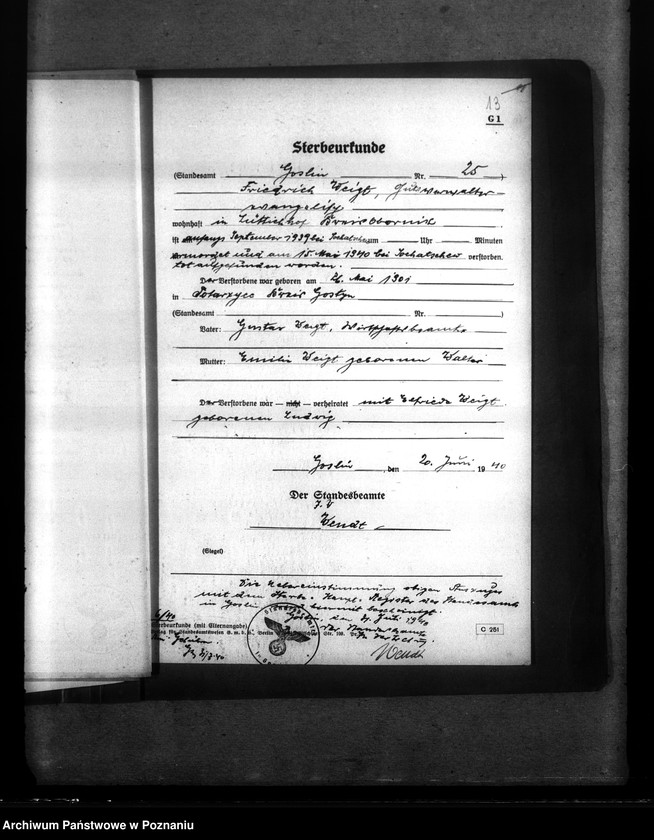 13
G 1
Sterbeurkunde
(Standesamt Goslin Nr. 25)
Friedrich Weigt, Gutsverwalter
evangelisch
wohnhaft in Lüttichhof Kreis Obornik
ist anfangs September 1939 bei Sochatschew um Uhr Minuten
ermordet und am 15. Mai 1940 bei Sochatschew verstorben.
tot aufgefunden worden.
Der Verstorbene war geboren am 26. Mai 1901
in Potarzyce Kreis Gostyn
(Standesamt Nr. )
Vater: Gustav Weigt, Wirtschaftsbeamter
Mutter: Emilie Weigt geborenen Walter
Der Verstorbene war — nicht — verheiratet mit Elfriede Weigt
geborenen Ludwig
Goslin, den 20. Juni 1940
Der Standesbeamte
J. V
Wendt
(Siegel)
Die Uebereinstimmung obigen Auszuges
mit dem Register des Standesamts
in Goslin hiermit bescheinigt.
Goslin den Juli 1940
Der Standesbeamte
Sterbeurkunde (mit Elternangabe)
Verlag für Standesamtswesen G. m. b. H., Berlin
Wendt
C 251
Archiwum Państwowe w Poznaniu